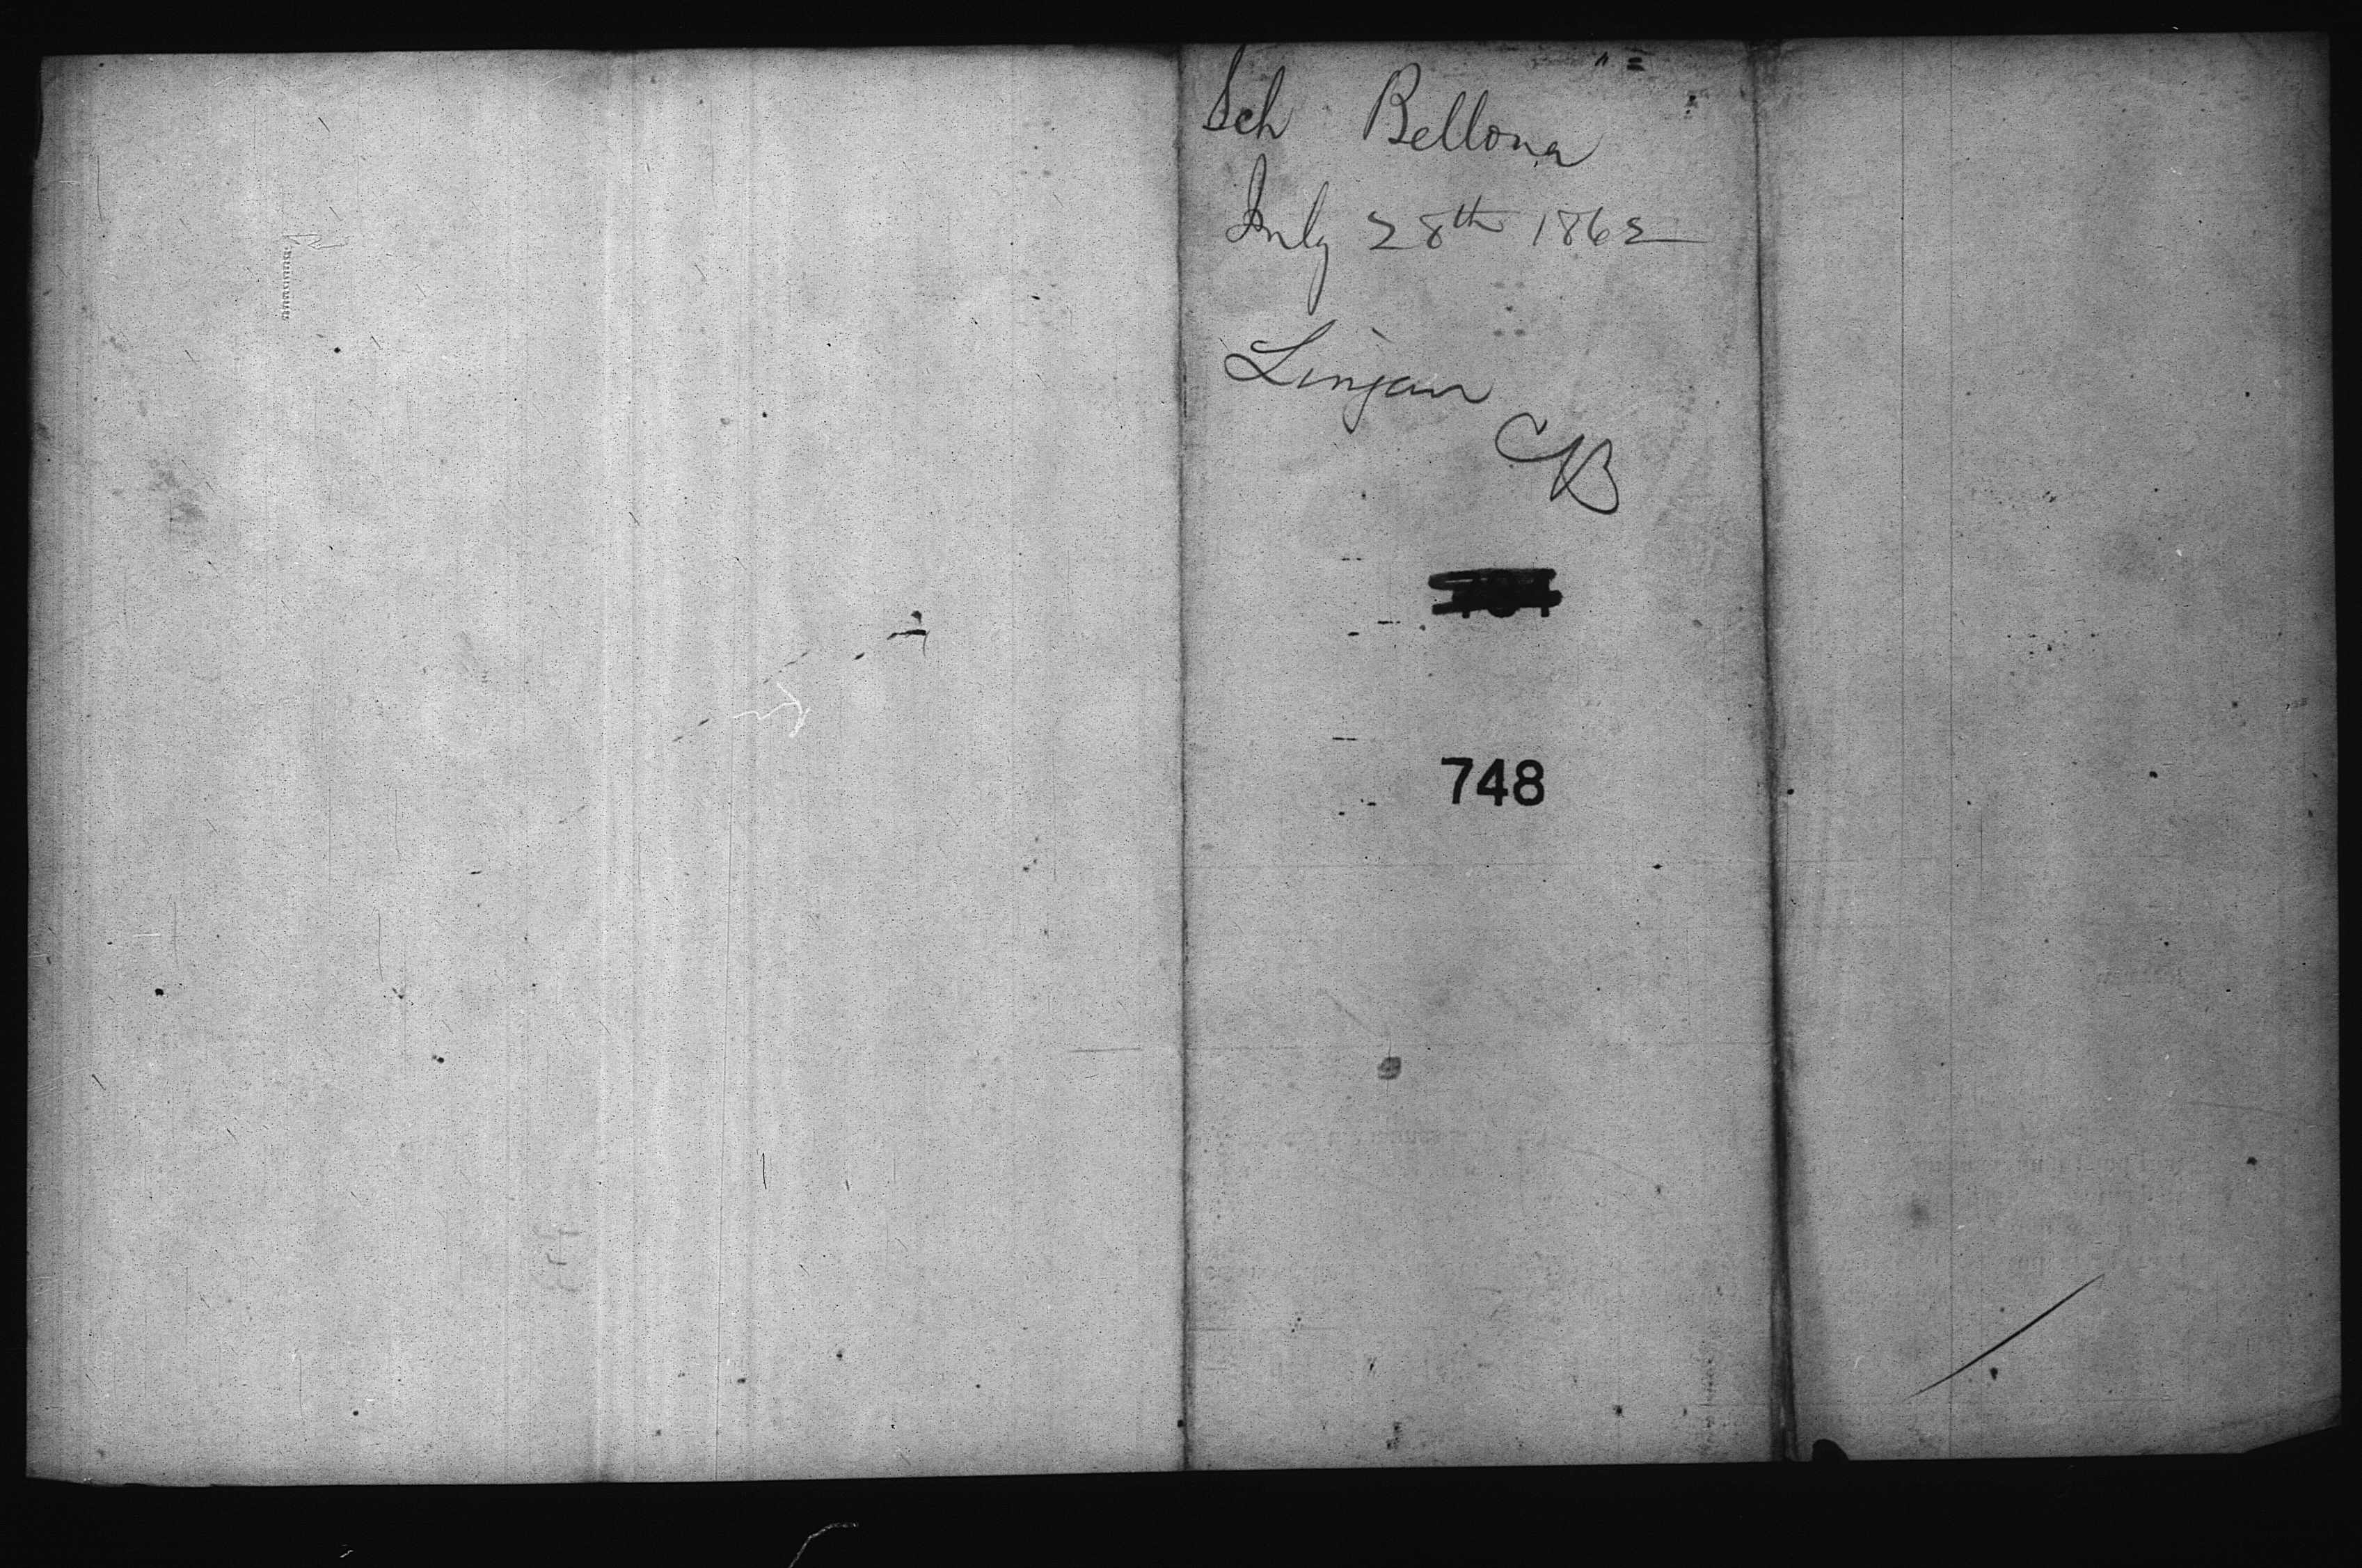 Sch Bellona
July 28th 1862
Lingan
CB
748